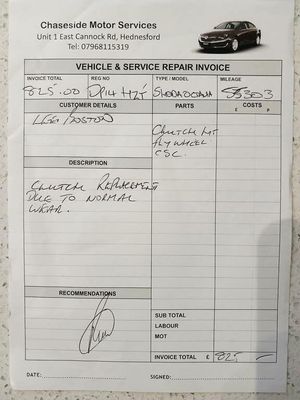 Chaseside Motor Services
Unit 1 East Cannock Rd, Hednesford
Tel: 07968115319
VEHICLE & SERVICE REPAIR INVOICE
INVOICE TOTAL REG NO TYPE / MODEL MILEAGE
825.00 DP14 HZY SKODA OCTAVIA 85303
CUSTOMER DETAILS PARTS COSTS
£ P
CLUTCH KIT
FLYWHEEL
CSC.
DESCRIPTION
CLUTCH REPLACEMENT
DUE TO NORMAL
WEAR.
RECOMMENDATIONS
SUB TOTAL
LABOUR
MOT
INVOICE TOTAL £ 825 –
DATE: SIGNED: